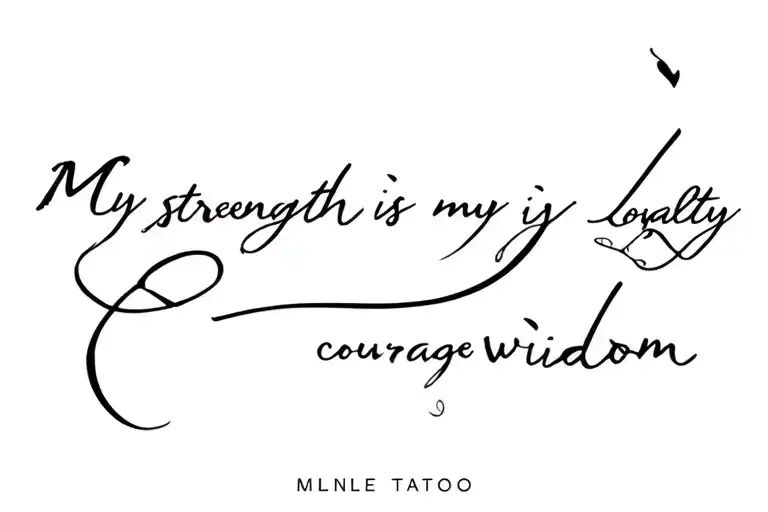 My streength is my ij loyalty
courage wiidom
MLNLE TATOO